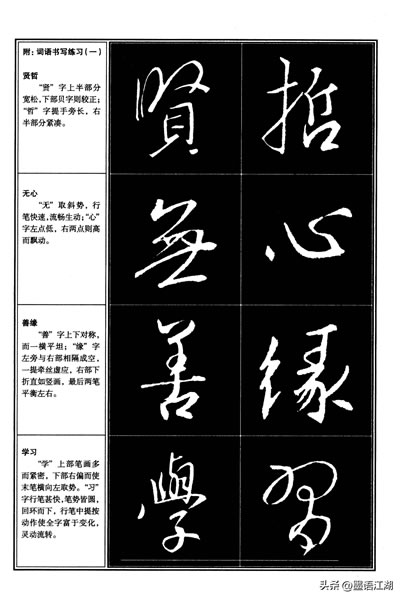 附:词语书写练习(一)
贤哲
“贤”字上半部分
宽松,下部贝字则较正;
“哲”字提手旁长,右
半部分紧凑。
賢哲
无心
“无”取斜势,行
笔快速,流畅生动;“心”
字左点低,右两点则高
而飘动。
無心
善缘
“善”字上下对称,
而一横平坦;“缘”字
左旁与右部相隔成空,
一提牵丝虚应,右部下
折直如竖画,最后两笔
平衡左右。
善緣
学习
“学”上部笔画多
而紧密,下部右偏而使
末笔横向左取势。“习”
字行笔甚快,笔势皆圆,
回环而下,行笔中提按
动作使全字富于变化,
灵动流转。
學習
头条@墨语江湖